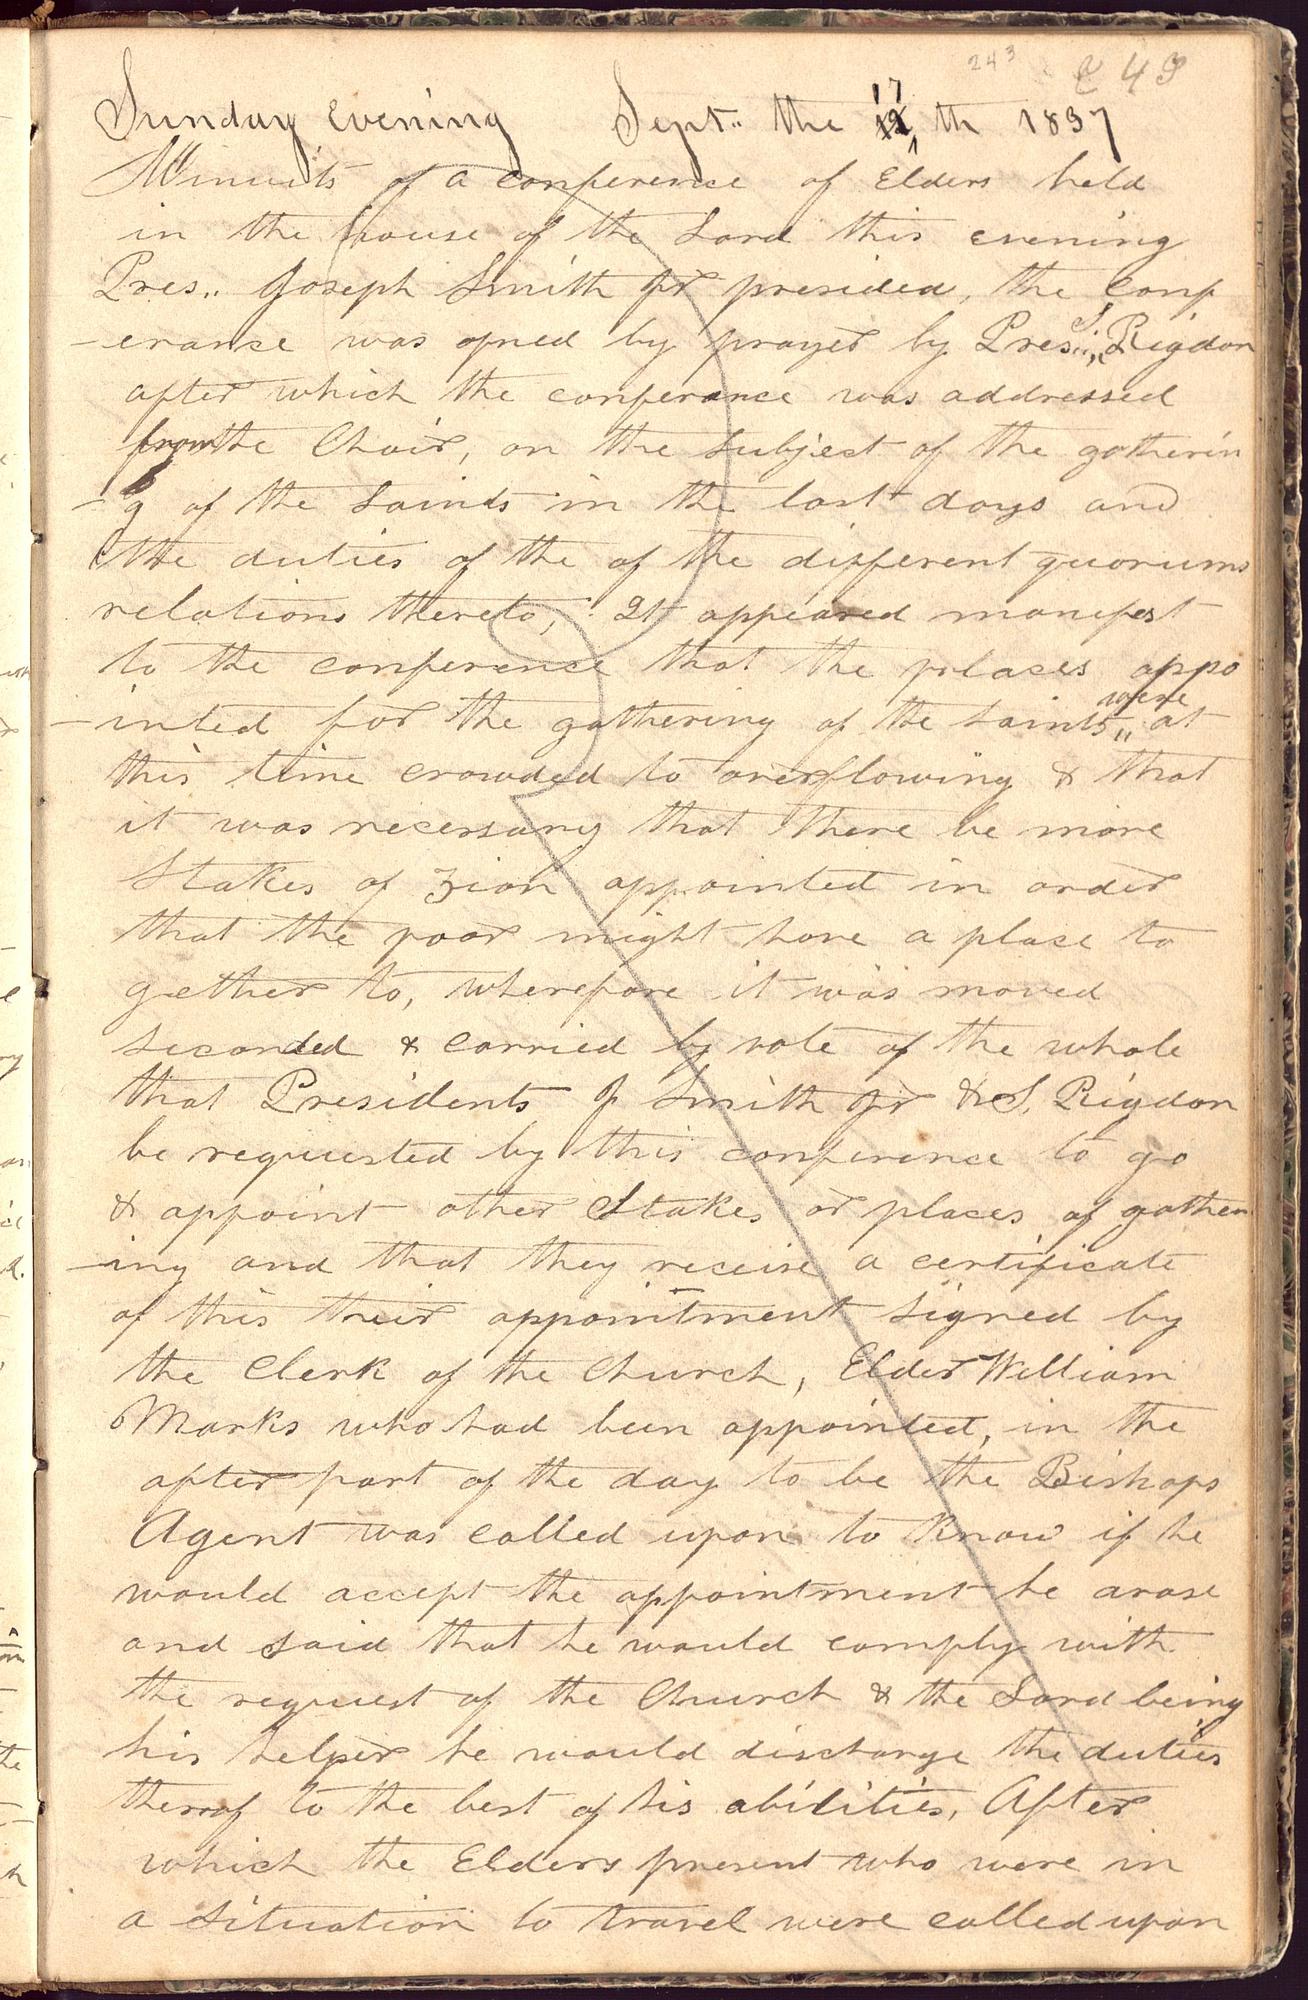 243
Sunday Evening Sept.. the 17 th 1837
Minuits of a conference of Elders held
in the house of the Lord this evening
Pres.. Joseph Smith Jr presided, the conf
-erance was opned by prayer by Pres.. S Rigdon
after which the conferance was addressed
from the Chair, on the subject of the gatherin
-g of the Saints in the last days and
the duties of the of the different quorums
relations thereto, It appeared manifest
to the conference that the places appo
-inted for the gathering of the saints were at
this time crowded to overflowing & that
it was necessary that there be more
Stakes of Zion appointed in order
that the poor might have a place to
gether to, wherefore it was moved
seconded & carried by vote of the whole
that Presidents J Smith Jr & S. Rigdon
be requested by this conference to go
& appoint other Stakes or places of gather
-ing and that they receive a certificate
of this their appointment signed by
the Clerk of the Church, Elder William
Marks who had been appointed, in the
after part of the day to be the Bishops
Agent was called upon to know if he
would accept the appointment he arose
and said that he would comply with
the request of the Church & the Lord being
his helper he would discharge the duties
therof to the best of his abilities, After
which the Elders present who were in
a situation to travel were called upon